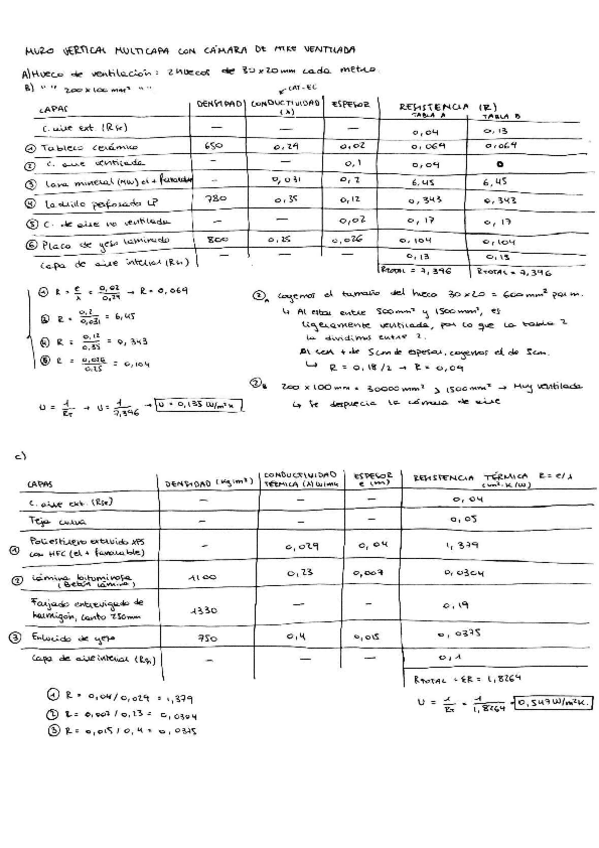 MURO VERTICAL MULTICAPA CON CÁMARA DE AIRE VENTILADA
A) Hueco de ventilación: 2 huecos de 30x20mm cada metro.
B) " " 200x100 mm² " "
CAT-EC
CAPAS DENSIDAD CONDUCTIVIDAD (λ) ESPESOR RESISTENCIA (R)
TABLA A TABLA B
C. aire ext. (Rse) — — — 0,04 0,13
① Tablero cerámico 650 0,29 0,02 0,069 0,069
② C. aire ventilada — — 0,1 0,09 0
③ Lana mineral (MW) el + favorable - 0,031 0,2 6,45 6,45
④ Ladrillo perforado LP 780 0,35 0,12 0,343 0,343
⑤ C. de aire no ventilada — — 0,02 0,17 0,17
⑥ Placa de yeso laminado 800 0,25 0,026 0,104 0,104
Capa de aire interior (Rsi) — — — 0,13 0,13
RTOTAL = 7,396 RTOTAL = 7,396
① R = e/λ = 0,02/0,29 → R = 0,069
③ R = 0,2/0,031 = 6,45
④ R = 0,12/0,35 = 0,343
R = 0,026/0,25 = 0,104
U = 1/RT → U = 1/7,396 → U = 0,135 W/m²K
②A Cogemos el tamaño del hueco 30x20 = 600mm² por m.
↳ Al estar entre 500mm² y 1500mm², es
ligeramente ventilada, por lo que la tabla 2
la dividimos entre 2.
Al ser + de 5cm de espesor, cogemos el de 5cm.
↳ R = 0,18/2 → R = 0,09
②B 200x100mm = 30000mm² > 1500mm² → Muy ventilada
↳ Se desprecia la cámara de aire
c)
CAPAS DENSIDAD (kg/m³) CONDUCTIVIDAD TÉRMICA (λ) W/mk ESPESOR e (m) RESISTENCIA TÉRMICA R = e/λ (m²·K/W)
C. aire ext. (Rse) — — — 0,04
Teja curva — — — 0,05
① Poliestireno extruido XPS con HFC (el + favorable) — 0,029 0,04 1,379
② Lámina bituminosa (Betún lámina) 1100 0,23 0,007 0,0304
Forjado entrevigado de hormigón, canto 250mm 1330 — — 0,19
③ Enlucido de yeso 750 0,4 0,015 0,0375
Capa de aire interior (Rsi) — — — 0,1
RTOTAL = ΣR = 1,8264
① R = 0,04/0,029 = 1,379
② R = 0,007/0,23 = 0,0304
③ R = 0,015/0,4 = 0,0375
U = 1/RT = 1/1,8264 = 0,547 W/m²K.